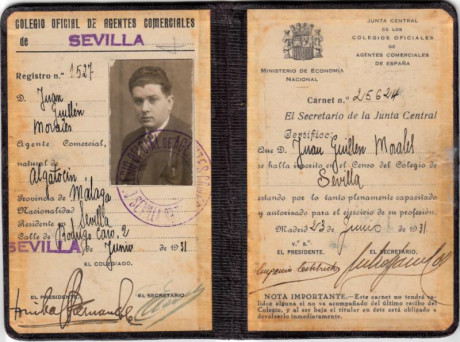 COLEGIO OFICIAL DE AGENTES COMERCIALES
de SEVILLA
Registro n.º 1527
D. Juan
Guillen
Morales
Agente Comercial,
natural de
Algatocin
Provincia de Málaga
Nacionalidad
Residente Sevilla
Calle de Rodrigo Caro, 2
SEVILLA Junio 1931
EL COLEGIADO,
EL PRESIDENTE EL SECRETARIO
JUNTA CENTRAL
DE LOS
COLEGIOS OFICIALES
DE
AGENTES COMERCIALES
DE ESPAÑA
MINISTERIO DE ECONOMÍA
NACIONAL
Carnet n.º 25624
El Secretario de la Junta Central
Certifico:
Que D. Juan Guillen Morales
se halla inscrito en el Censo del Colegio de
Sevilla
estando por lo tanto plenamente capacitado
y autorizado para el ejercicio de su profesión.
Madrid 23 Junio 1931
V.º B.º
EL PRESIDENTE, EL SECRETARIO,
NOTA IMPORTANTE.- Este carnet no tendrá
valor alguno si no va acompañado del último recibo del
Colegio, y al ser baja el titular en éste está obligado a
devolverlo inmediatamente.